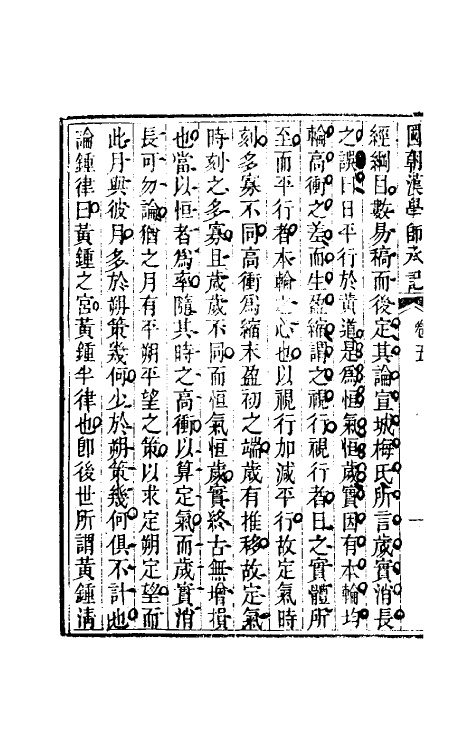 國朝漢學師承記 卷五 一
經綱目數易稿而後定其論宣城梅氏所言歲實消長
之誤曰日平行於黃道是爲恒氣恒歲實因有本輪均
輪高衝之差而生盈縮謂之視行視行者日之實體所
至而平行者本輪之心也以視行加減平行故定氣時
刻多寡不同高衝爲縮末盈初之端歲有推移故定氣
時刻之多寡且歲歲不同而恒氣恒歲實終古無增損
也當以恒者爲率隨其時之高衝以算定氣而歲實消
長可勿論猶之月有平朔平望之策以求定朔定望而
此月與彼月多於朔策幾何少於朔策幾何俱不計也
論鍾律曰黃鍾之宮黃鍾半律也卽後世所謂黃鍾淸